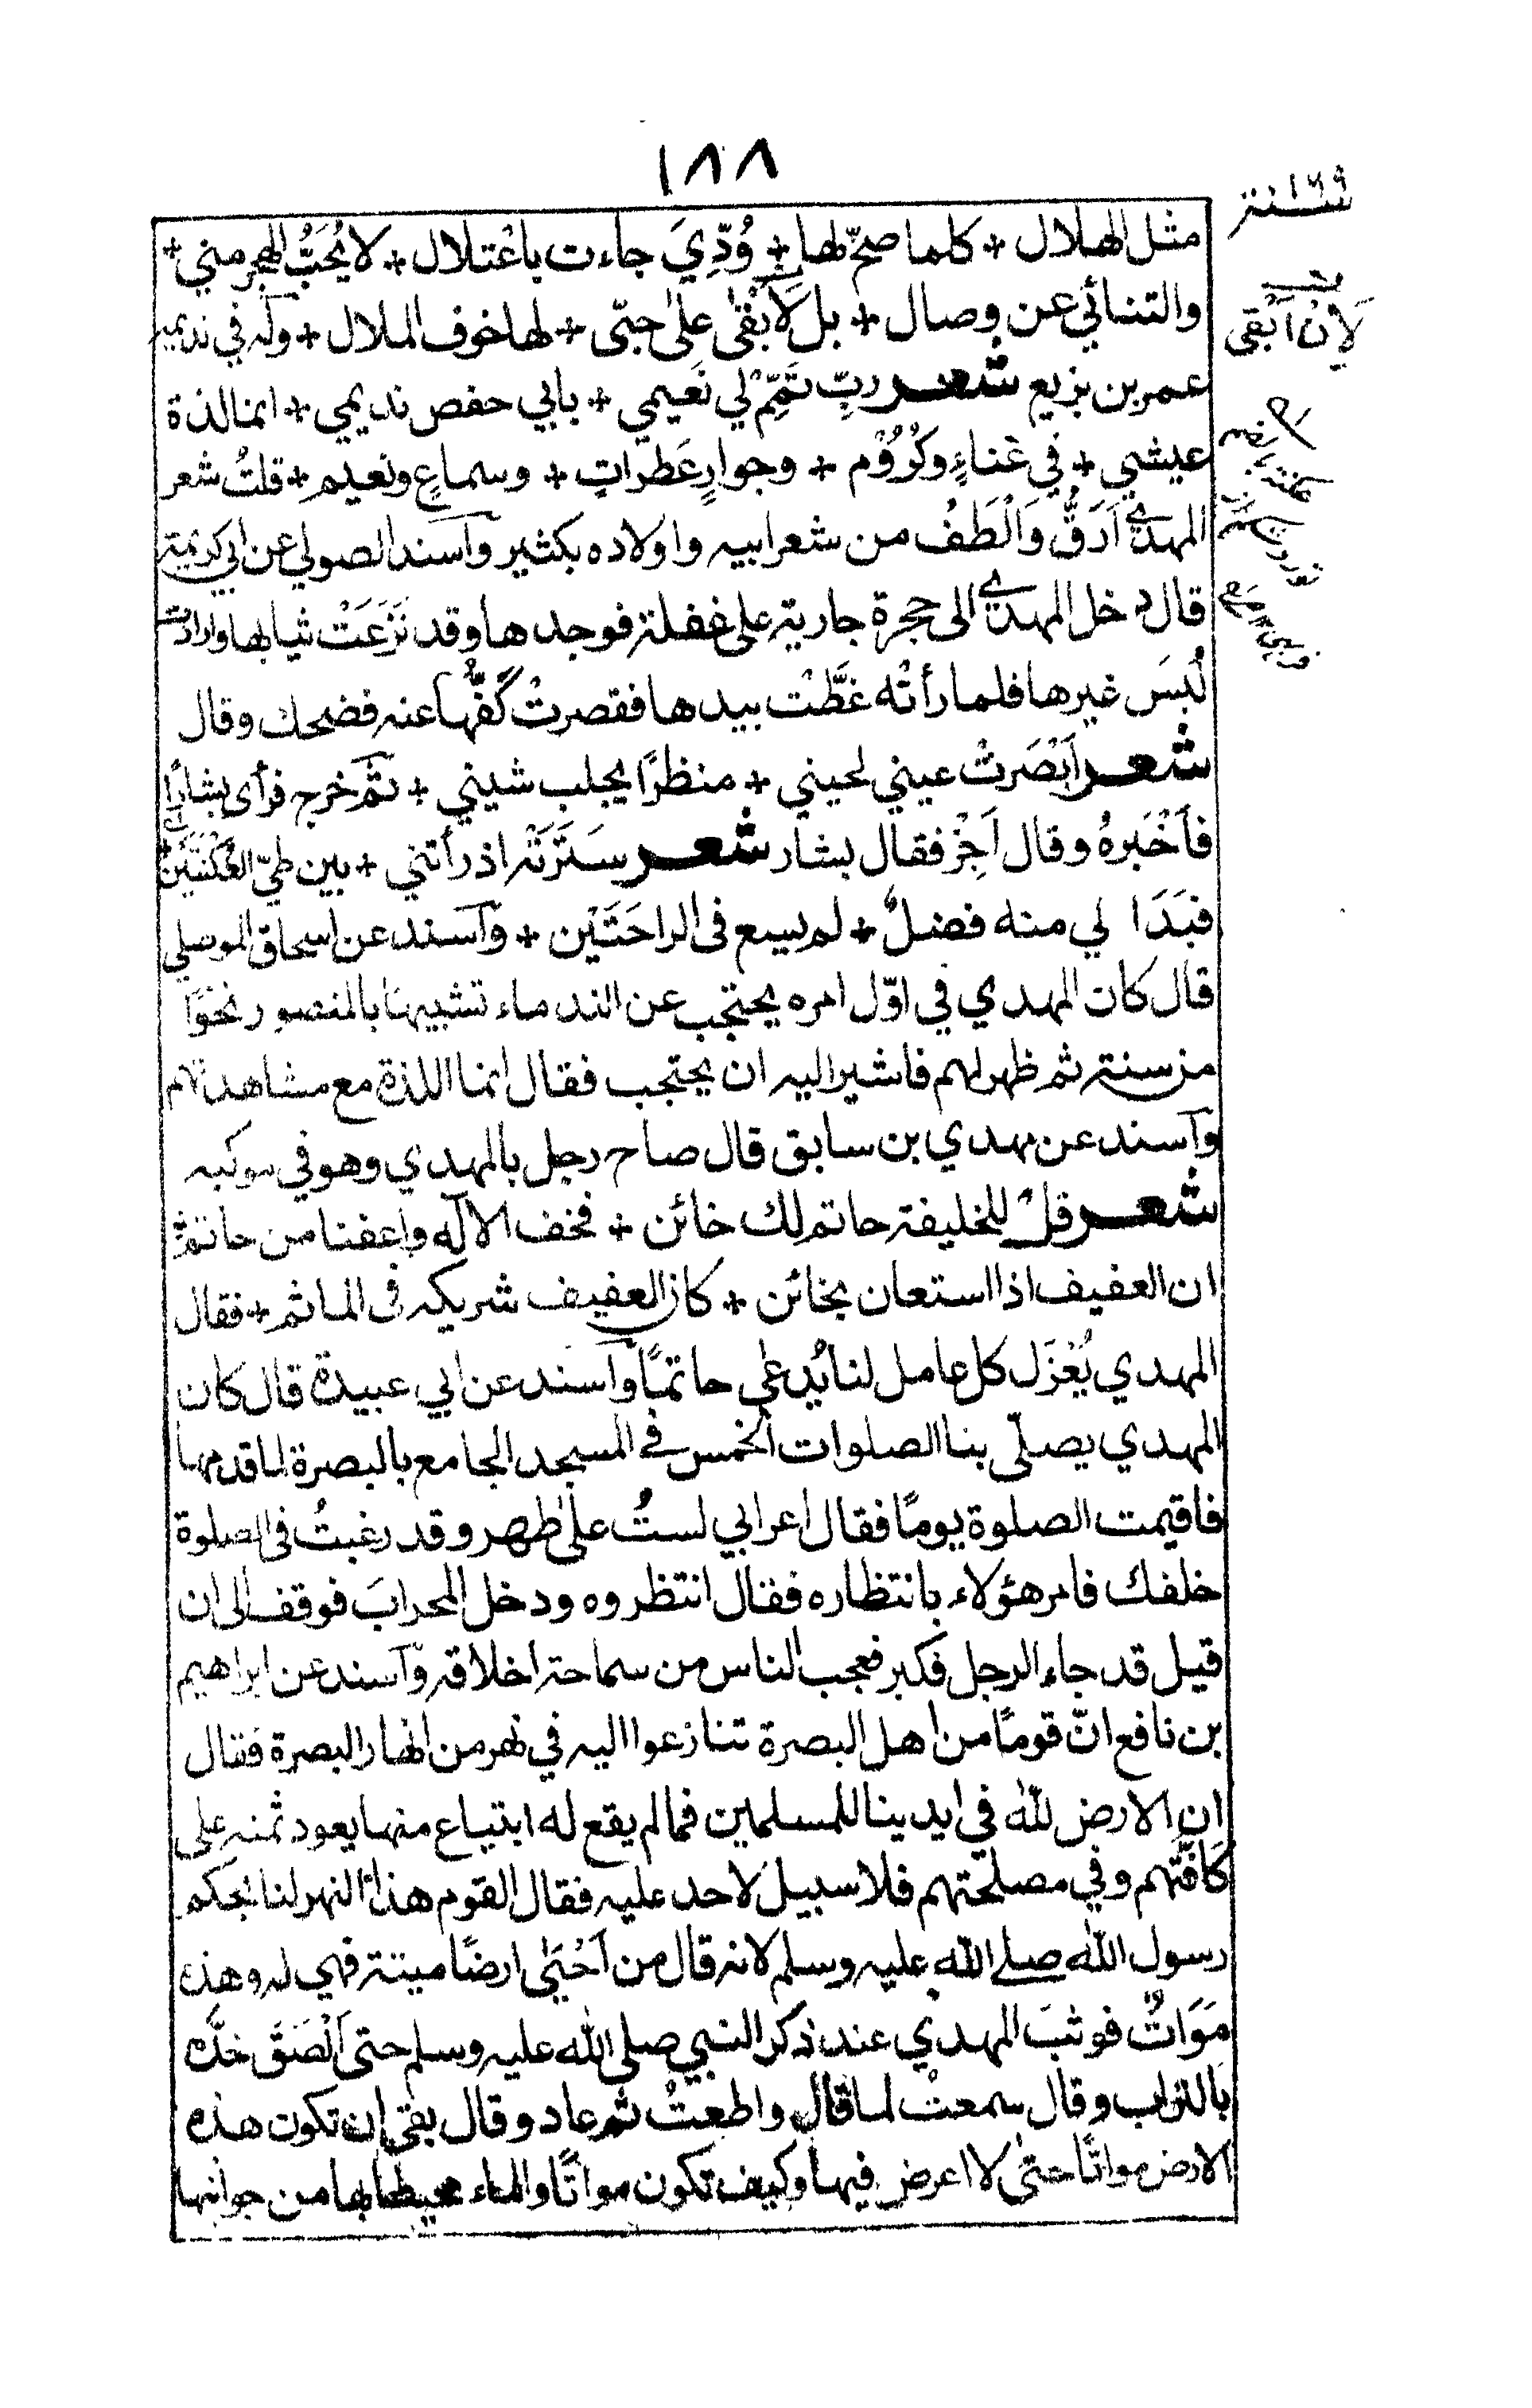 ١٨٨
سنة ١٦٩
مثل الهلال + كلما صحّ لها + وُدِّيَ جاءت باعْتلال + لا يُحَبُّ الهجر مني +
والتنائي عن وصال + بل لَأَبْقىٰ علىٰ حبّى + لها خوف الملال + وله في نديمه
لِاَنْ اَبْقى
عمر بن بزيع شعر ربِّ تَمِّمْ لي نَعيمي + بابي حفص نديمي + انما لذة
عيشي + في غناءٍ وكُرُوْم + وجوارٍ عَطراتٍ + وسماعٍ ونعيم + قلتُ شعر
المهدي اَرَقُّ وَاَلْطَفُ من شعر ابيه واولاده بكثير وآسند الصولي عن ابي كريمة
قال دخل المهدي الى حجرة جارية على غفلة فوجدها وقد نَزَعَتْ ثيابها وارادت
لُبسَ غيرها فلما رأتْه غَطَّتْ بيدها فقصرتْ كَفُّها عنه فضحك وقال
شعر اَبْصَرتْ عيني لحيني + منظرًا يجلب شيني + ثم خرج فرأى بشارًا
فاَخْبَرهُ وقال اَجِزْ فقال بشار شعر سَتَرَتْه اذ رأتني + بين طيّ العُكْنَتَيْن +
فبَدَا لي منه فضلٌ + لم يسع فى الراحَتَيْن + وآسند عن اسحاق الموصلي
قال كان المهدي في اوّل امره يحتجب عن الندماء تشبيها بالمنصور نحوًا
من سنة ثم ظهر لهم فاشير اليه ان يحتجب فقال انما اللذة مع مشاهدتهم
وآسند عن مهدي بن سابق قال صاح رجل بالمهدي وهو في موكبه
شعر قلْ للخليفة حاتم لك خائن + فخف الاله واعفنا من حاتم +
ان العفيف اذا استعان بخائن + كان العفيف شريكه فى الماثم + فقال
المهدي يُعْزَل كل عامل لنا يُدعى حاتمًا وآسند عن ابي عبيدة قال كان
المهدي يصلّى بنا الصلوات الخمس في المسجد الجامع بالبصرة لما قدمها
فاقيمت الصلوة يومًا فقال اعرابي لستُ علىٰ طهر وقد رغبتُ فى الصلوة
خلفك فامر هؤلاء بانتظاره فقال انتظروه ودخل المحرابَ فوقف الى ان
قيل قد جاء الرجل فكبر فعجب الناس من سماحة اخلاقه وآسند عن ابراهيم
بن نافع انّ قومًا من اهل البصرة تنازعوا اليه في نهر من انهار البصرة فقال
ان الارض للّٰه في ايدينا للمسلمين فما لم يقع له ابتياع منها يعود ثمنه على
كَافَّتهم وفي مصلحتهم فلا سبيل لاحد عليه فقال القوم هذا النهر لنا بحكم
رسول اللّٰه صلى اللّٰه عليه وسلم لانه قال من اَحْيَىٰ ارضًا ميتة فهي له وهذه
مَوَاتٌ فوثبَ المهدي عند ذكر النبي صلى اللّٰه عليه وسلم حتى اَلْصَقَ خدَّه
بالتراب وقال سمعتُ لما قال واطعتُ ثم عاد وقال بقي ان تكون هذه
الارض مواتًا حتىٰ لا اعرض فيها وكيف تكون مواتًا والماء محيط بها من جوانبها